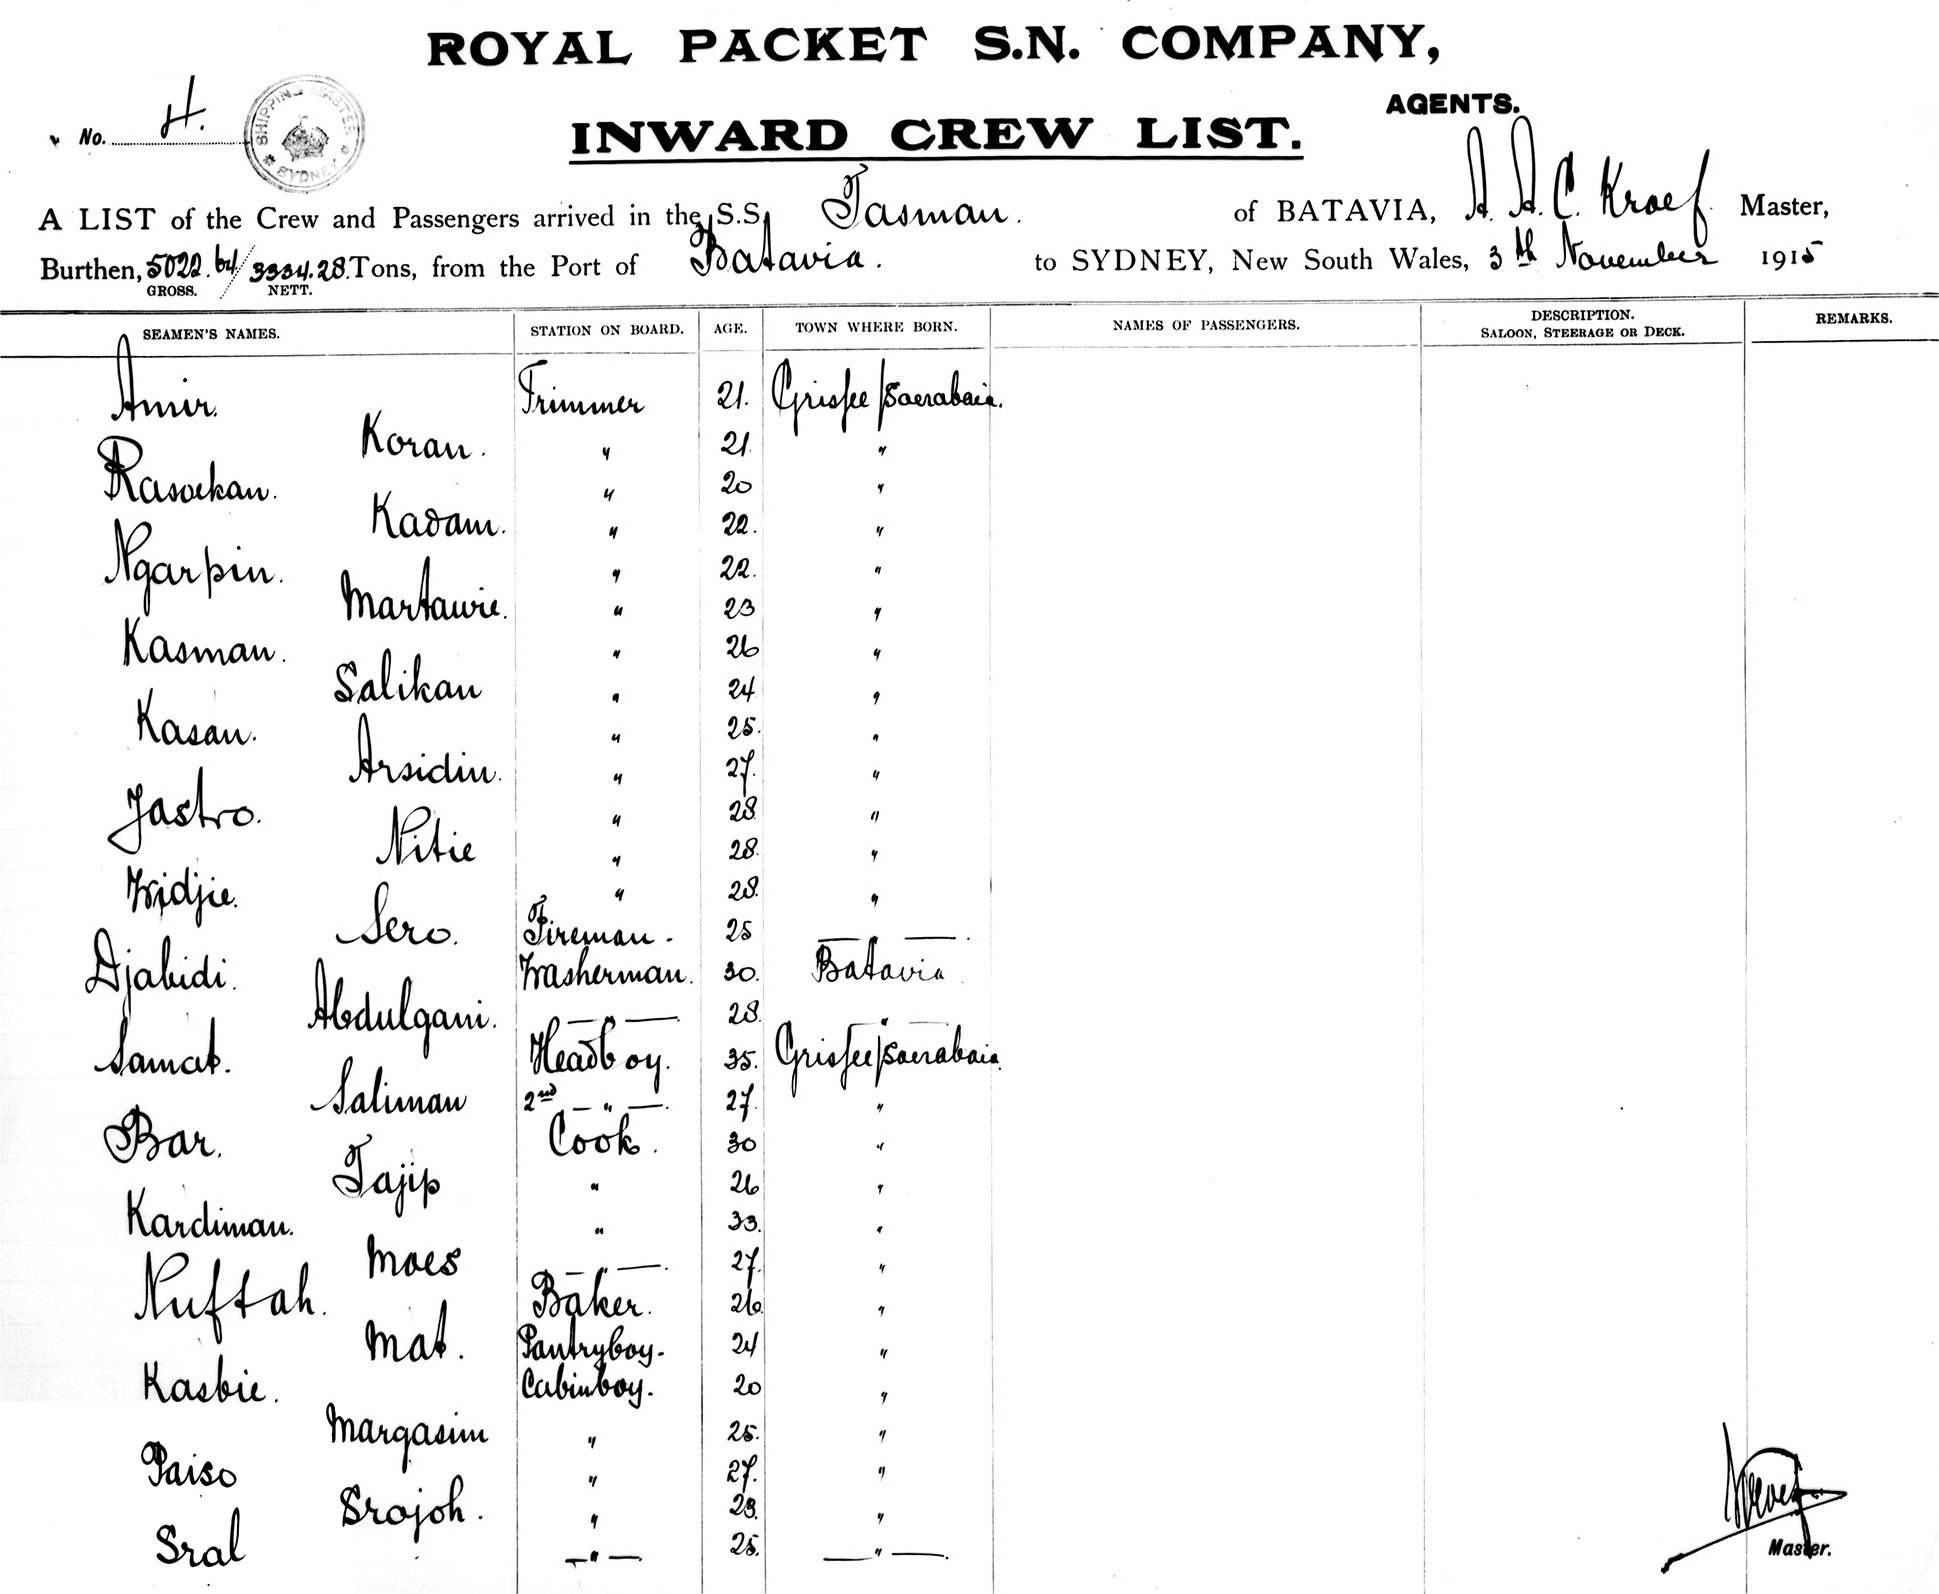 ROYAL PACKET S.N. COMPANY,
AGENTS.
No. 4.
SHIPPING MASTER SYDNEY
INWARD CREW LIST.
A LIST of the Crew and Passengers arrived in the S.S. Tasman. of BATAVIA, A. A. C. Kroef Master,
Burthen, 5022.64/3334.28. Tons, from the Port of Batavia. to SYDNEY, New South Wales, 3th November 1915
GROSS. NETT.
SEAMEN'S NAMES. STATION ON BOARD. AGE. TOWN WHERE BORN. NAMES OF PASSENGERS. DESCRIPTION. SALOON, STEERAGE OR DECK. REMARKS.
Amir. Trimmer 21. Grissee/Soerabaia.
Koran. " 21. "
Rasoekan. " 20 "
Kadam. " 22. "
Ngarpin. " 22. "
Martawie. " 23 "
Kasman. " 26 "
Salikan " 24 "
Kasan. " 25. "
Arsidin. " 27. "
Jastro. " 28. "
Nitie " 28. "
Widjie. " 28. "
Sero. Fireman. 25 — " —.
Djabidi. Washerman. 30. Batavia.
Abdulgani. — " — 28. — " —
Samat. Headboy. 35. Grissee/Soerabaia.
Saliman 2nd — " —. 27. "
Bar. Cook. 30 "
Tajip " 26 "
Kardiman. " 33. "
Moes — " —. 27. "
Nuftah. Baker. 26. "
Mat. Pantryboy. 24 "
Kasbie. Cabinboy. 20 "
Margasim " 25. "
Paiso " 27. "
Srojoh. " 28. "
Sral — " —. 25. — " —.
Master.